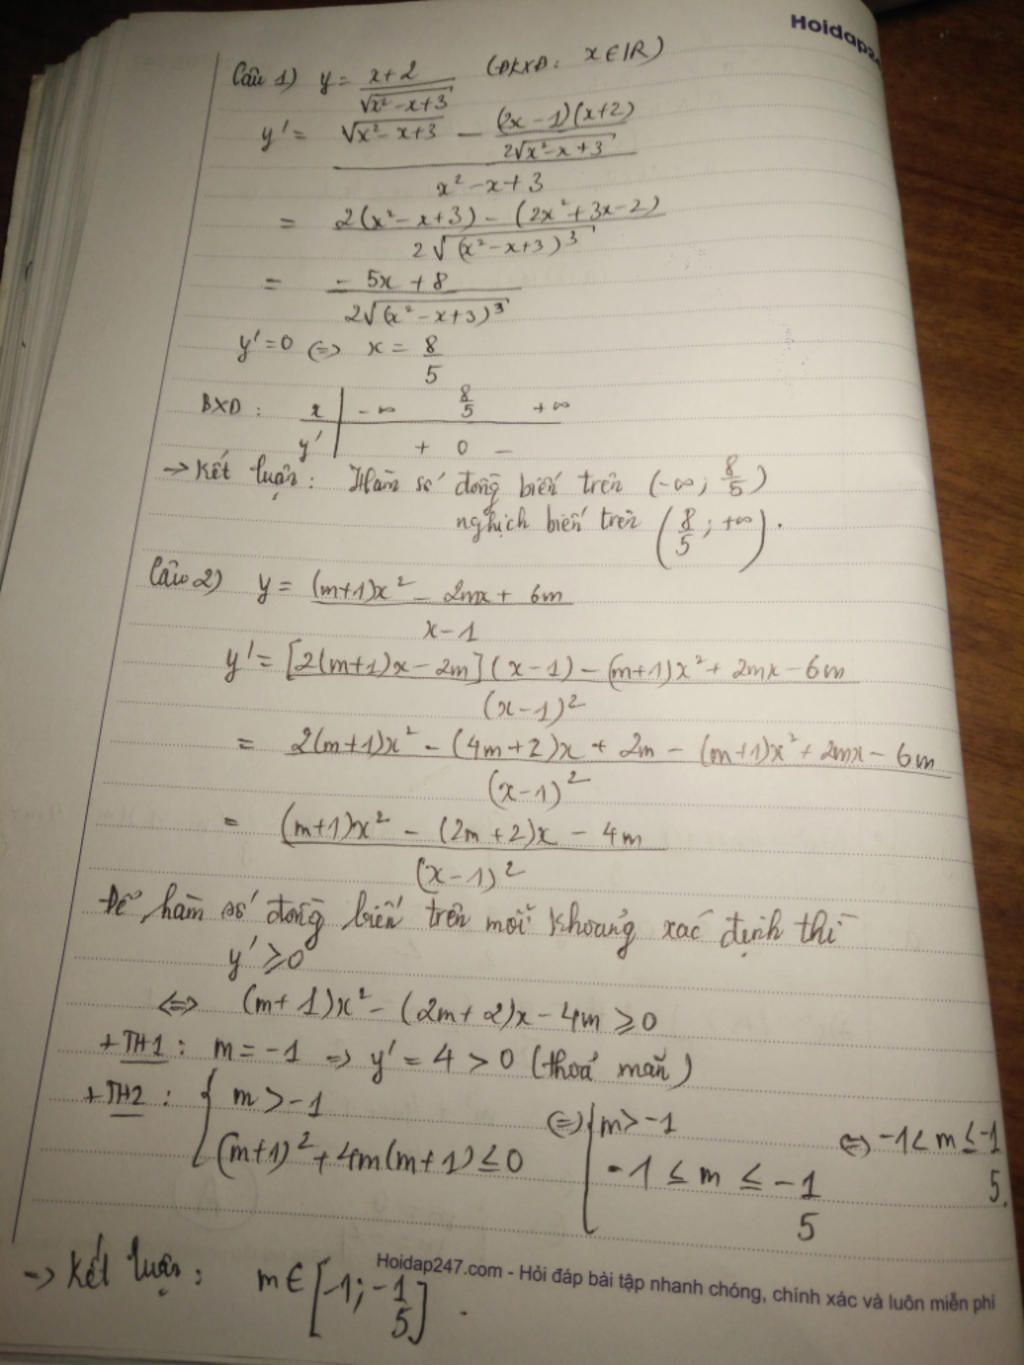 Hoidap24
Câu 1) y = x+2 / √(x²-x+3) (ĐKXĐ: x∈ℝ)
y' = (√(x²-x+3) - (2x-1)(x+2) / 2√(x²-x+3)) / x²-x+3
= 2(x²-x+3) - (2x²+3x-2) / 2√(x²-x+3)³
= -5x+8 / 2√(x²-x+3)³
y'=0 <=> x = 8/5
BXD: x | -∞ 8/5 +∞
y' | + 0 -
-> Kết luận: Hàm số đồng biến trên (-∞; 8/5)
nghịch biến trên (8/5; +∞).
Câu 2) y = (m+1)x² - 2mx + 6m / x-1
y' = [2(m+1)x-2m](x-1) - (m+1)x² + 2mx - 6m / (x-1)²
= 2(m+1)x² - (4m+2)x + 2m - (m+1)x² + 2mx - 6m / (x-1)²
= (m+1)x² - (2m+2)x - 4m / (x-1)²
Để hàm số đồng biến trên mỗi khoảng xác định thì
y' ≥ 0
<=> (m+1)x² - (2m+2)x - 4m ≥ 0
+TH1: m = -1 => y' = 4 > 0 (thoả mãn)
+TH2: { m > -1 ; (m+1)² + 4m(m+1) ≤ 0 <=> { m > -1 ; -1 ≤ m ≤ -1/5 <=> -1 < m ≤ -1/5.
-> Kết luận: m ∈ [-1; -1/5].
Hoidap247.com - Hỏi đáp bài tập nhanh chóng, chính xác và luôn miễn phí